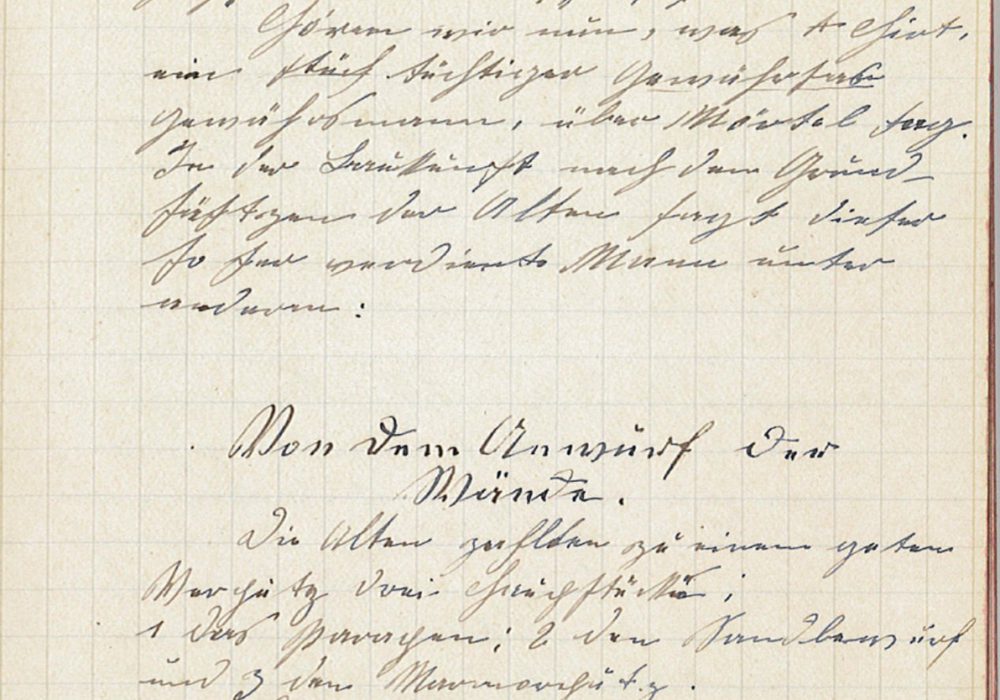 Hören wir nun, was A Hirt,
ein sehr tüchtiger
Gewährsmann, über Mörtel sag.
In der Baukunst nach den Grund-
sätzen der Alten sagt dieser
so ser verdiente Mann unter
anderm:
Von dem Anwurf der
Wände.
Die Alten zahlten zu einem guten
Verputz drei Hauptstücke;
1 das Berapen; 2 den Sandbewurf
und 3 den Marmorputz.